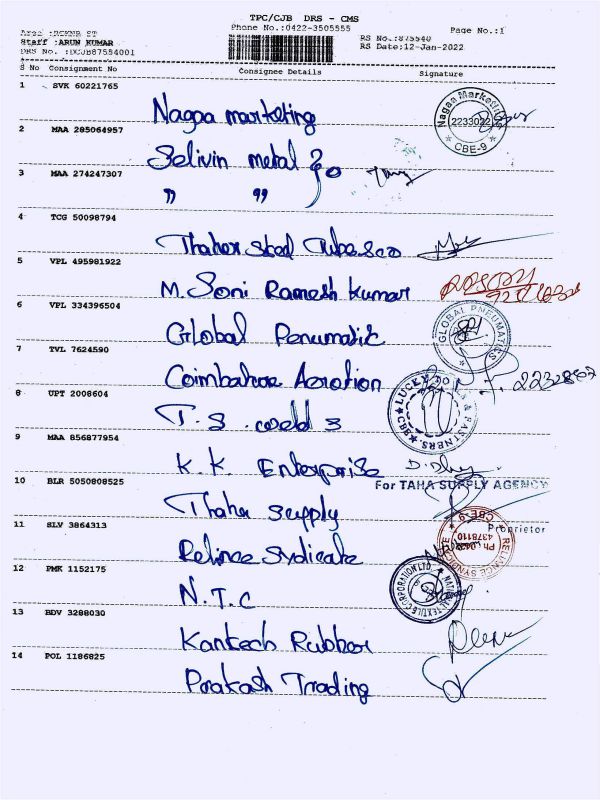 TPC/CJB DRS - CMS
Phone No.:0422-3505555
Page No.:1
Area :RCKNR ST
Staff :ARUN KUMAR
DRS No. :DCJB87554001
RS No.:875540
RS Date:12-Jan-2022
S No Consignment No Consignee Details Signature
1 SVK 60221765
Nagaa marketing
Nagaa Marketing 2233022 CBE-9
2 MAA 285064957
Selivin metal & Co
3 MAA 274247307
" "
4 TCG 50098794
Thaher Steel Tubes co
5 VPL 495981922
M. Soni Ramesh Kumar
6 VPL 334396504
Global Penumatic
GLOBAL PNEUMATICS
7 TVL 7624590
Coimbatore Aeration
8 UPT 2008604
T.S. weld 3
9 MAA 856877954
K.K. Enterprise
10 BLR 5050808525
Thaha supply
For TAHA SUPPLY AGENCY
Proprietor
11 SLV 3864313
Relince Syndicate
Ph: 4378110 CBE-9
12 PMK 1152175
N.T.C
NATIONAL TEXTILE CORPORATION LTD.
13 BDV 3288030
Kantech Rubber
14 POL 1186825
Prakash Trading